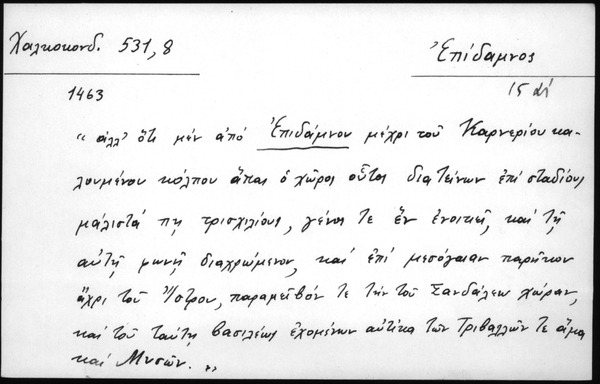 Χαλκοκονδ. 531,8
Ἐπίδαμνος
1463
15 αἰ
"ἀλλ' ὅτι μέν ἀπό Ἐπιδάμνου μέχρι τοῦ Καρνερίου κα-
λουμένου κόλπου ἅπας ὁ χῶρος οὗτος διατείνων ἐπί σταδίους
μάλιστά πῃ τρισχιλίους, γένος τε ἕν ἐνοικεῖ, καί τῇ
αὐτῇ φωνῇ διαχρώμενον, καί ἐπί μεσόγαιαν παρῆκον
ἄχρι τοῦ Ἴστρου, παραμεῖβόν τε τήν τοῦ Σανδάλεω χώραν,
καί τοῦ ταύτῃ βασιλέως ἐχομένων αὐτίκα τῶν Τριβαλλῶν τε ἅμα
καί Μυσῶν. "